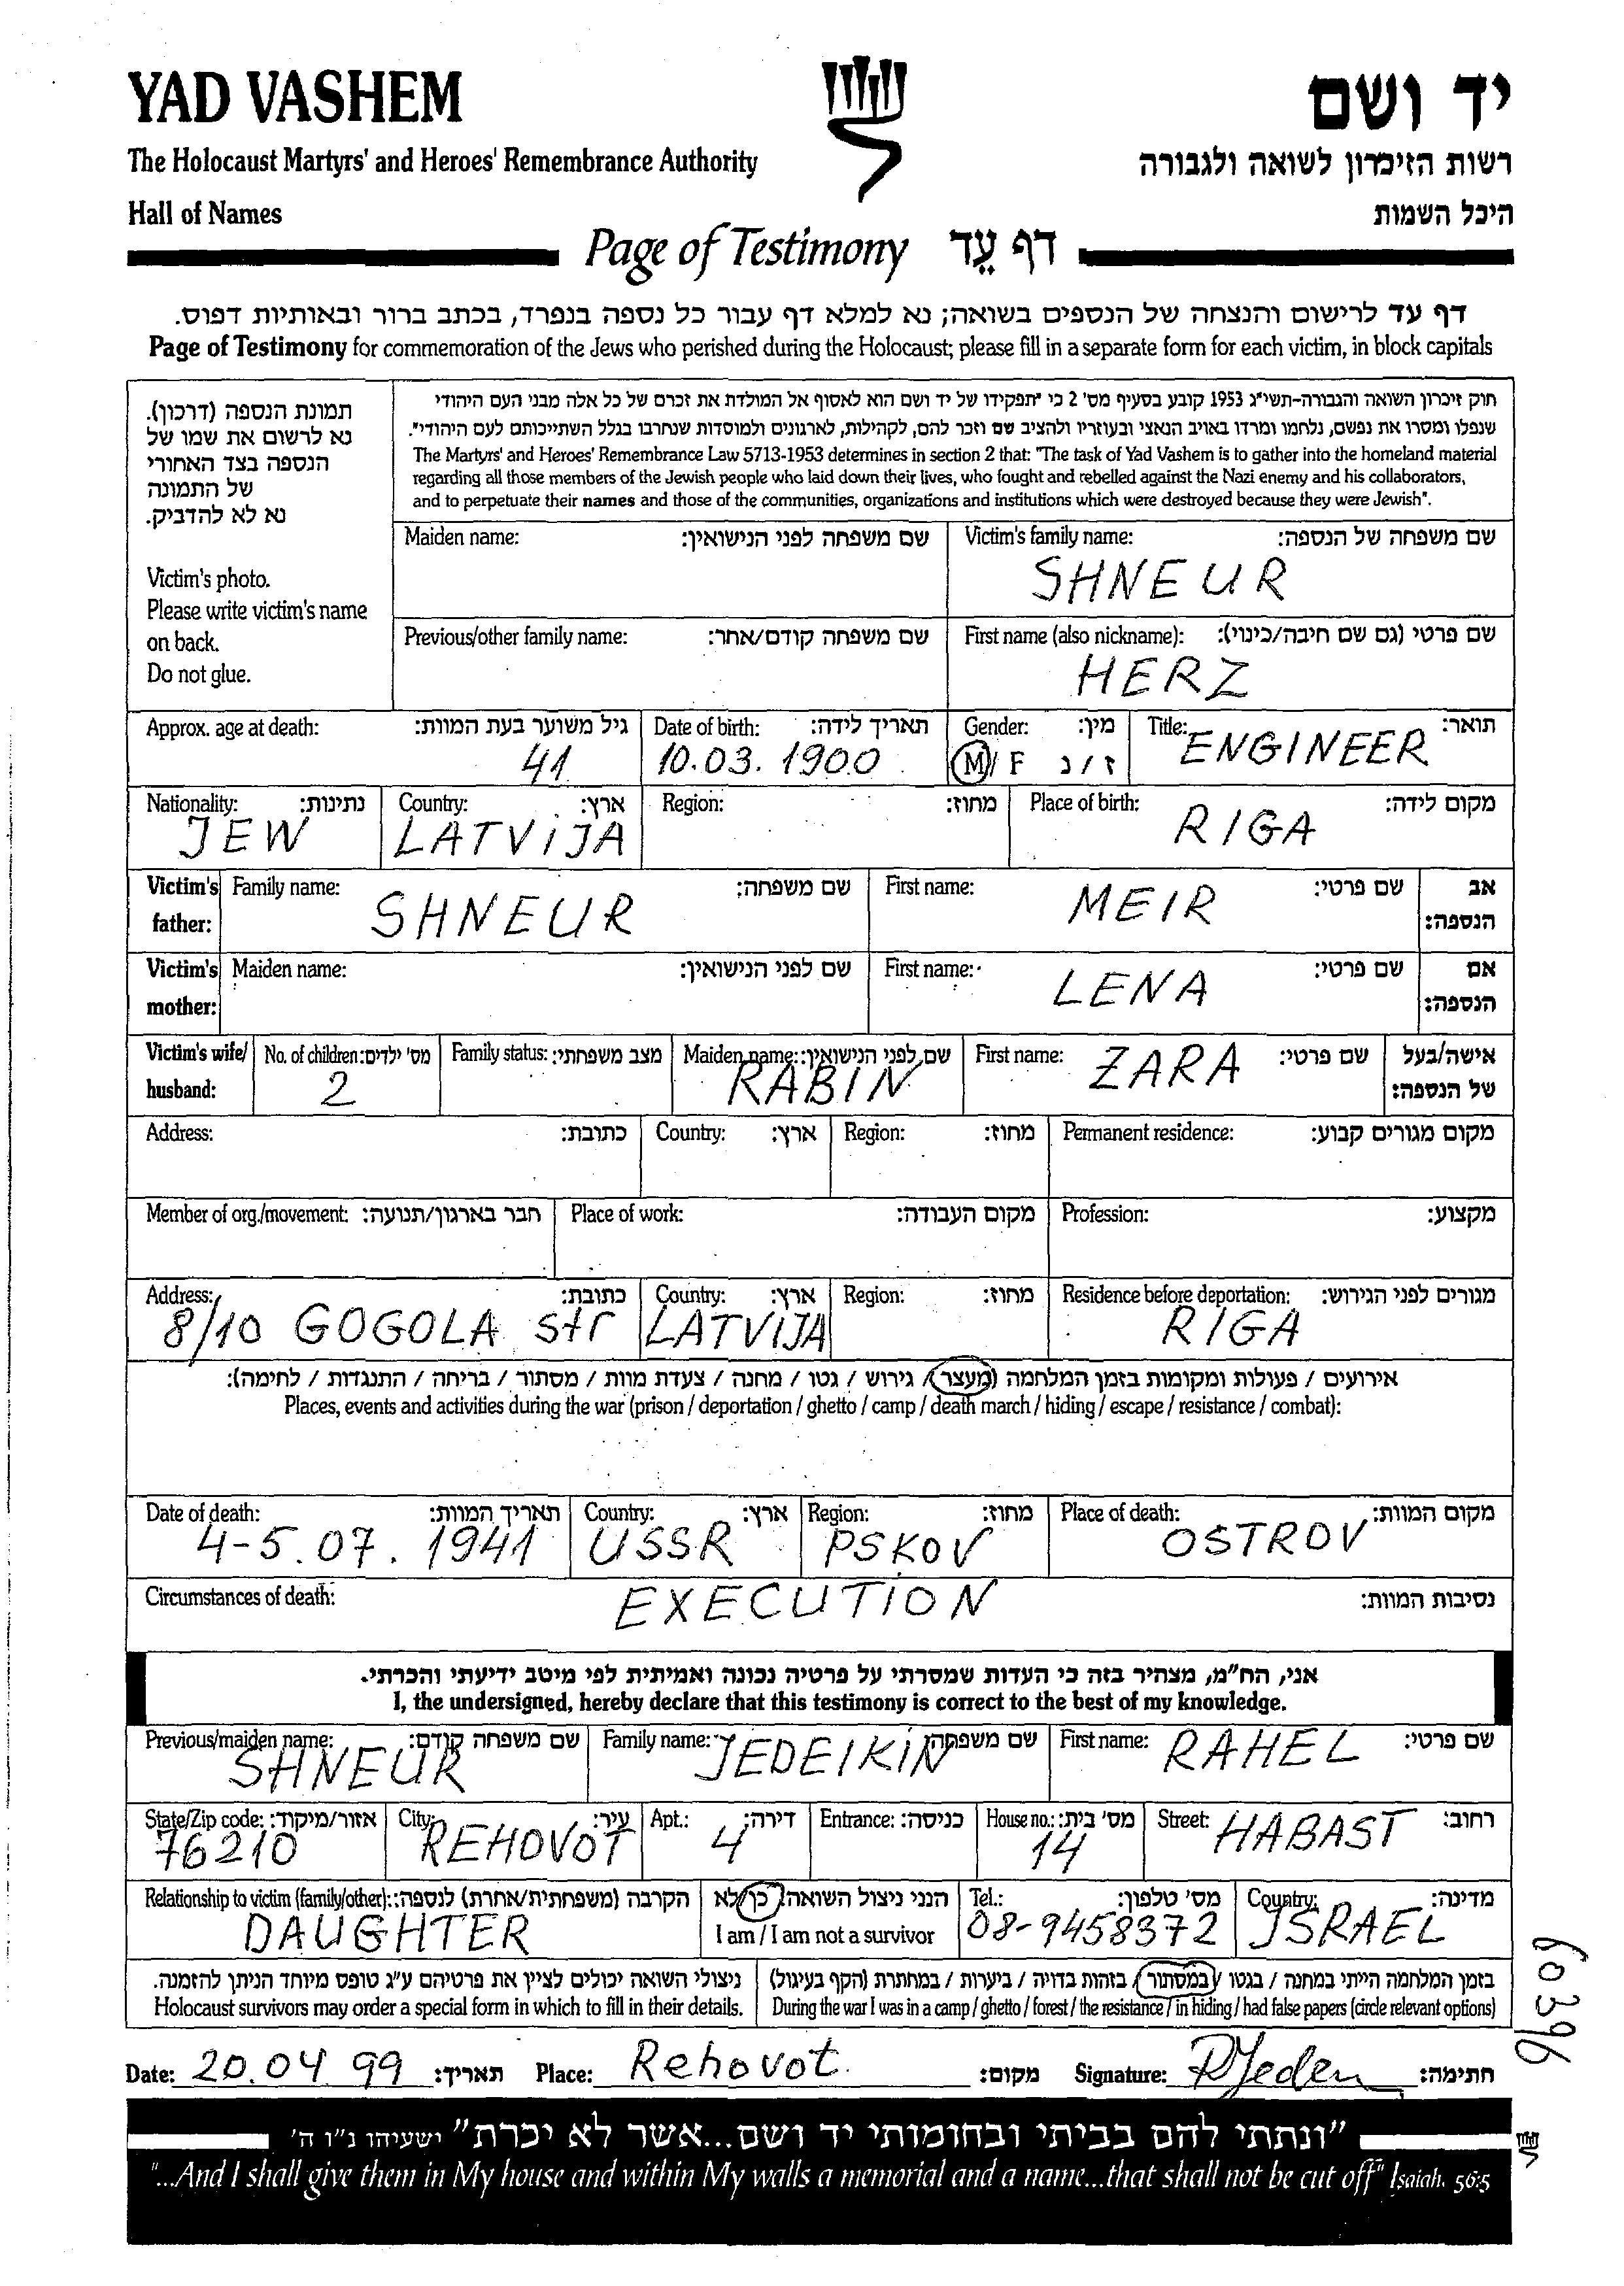 YAD VASHEM
יד ושם
The Holocaust Martyrs' and Heroes' Remembrance Authority
רשות הזיכרון לשואה ולגבורה
Hall of Names
היכל השמות
Page of Testimony דף עֵד
דף עד לרישום והנצחה של הנספים בשואה; נא למלא דף עבור כל נספה בנפרד, בכתב ברור ובאותיות דפוס.
Page of Testimony for commemoration of the Jews who perished during the Holocaust; please fill in a separate form for each victim, in block capitals
תמונת הנספה (דרכון).
נא לרשום את שמו של
הנספה בצד האחורי
של התמונה
נא לא להדביק.
Victim's photo.
Please write victim's name
on back.
Do not glue.
חוק זיכרון השואה והגבורה-תשי"ג 1953 קובע בסעיף מס' 2 כי "תפקידו של יד ושם הוא לאסוף אל המולדת את זכרם של כל אלה מבני העם היהודי
שנפלו ומסרו את נפשם, נלחמו ומרדו באויב הנאצי ובעוזריו ולהציב שם וזכר להם, לקהילות, לארגונים ולמוסדות שנחרבו בגלל השתייכותם לעם היהודי".
The Martyrs' and Heroes' Remembrance Law 5713-1953 determines in section 2 that: "The task of Yad Vashem is to gather into the homeland material
regarding all those members of the Jewish people who laid down their lives, who fought and rebelled against the Nazi enemy and his collaborators,
and to perpetuate their names and those of the communities, organizations and institutions which were destroyed because they were Jewish".
Maiden name: שם משפחה לפני הנישואין:
Victim's family name: שם משפחה של הנספה:
SHNEUR
Previous/other family name: שם משפחה קודם/אחר:
First name (also nickname): שם פרטי (גם שם חיבה/כינוי):
HERZ
Approx. age at death: גיל משוער בעת המוות:
41
Date of birth: תאריך לידה:
10.03.1900
Gender: מין:
M/F ז/נ
Title: תואר:
ENGINEER
Nationality: נתינות:
JEW
Country: ארץ:
LATVIJA
Region: מחוז:
Place of birth: מקום לידה:
RIGA
Victim's father: Family name: שם משפחה:
SHNEUR
First name: שם פרטי: אב הנספה:
MEIR
Victim's mother: Maiden name: שם לפני הנישואין:
First name: שם פרטי: אם הנספה:
LENA
Victim's wife/husband: No. of children: מס' ילדים:
2
Family status: מצב משפחתי:
Maiden name: שם לפני הנישואין:
RABIN
First name: שם פרטי: אישה/בעל של הנספה:
ZARA
Address: כתובת:
Country: ארץ:
Region: מחוז:
Permanent residence: מקום מגורים קבוע:
Member of org./movement: חבר בארגון/תנועה:
Place of work: מקום העבודה:
Profession: מקצוע:
Address: כתובת:
8/10 GOGOLA str
Country: ארץ:
LATVIJA
Region: מחוז:
Residence before deportation: מגורים לפני הגירוש:
RIGA
אירועים / פעולות ומקומות בזמן המלחמה (מעצר / גירוש / גטו / מחנה / צעדת מוות / מסתור / בריחה / התנגדות / לחימה):
Places, events and activities during the war (prison / deportation / ghetto / camp / death march / hiding / escape / resistance / combat):
Date of death: תאריך המוות:
4-5.07.1941
Country: ארץ:
USSR
Region: מחוז:
PSKOV
Place of death: מקום המוות:
OSTROV
Circumstances of death: נסיבות המוות:
EXECUTION
אני, הח"מ, מצהיר בזה כי העדות שמסרתי על פרטיה נכונה ואמיתית לפי מיטב ידיעתי והכרתי.
I, the undersigned, hereby declare that this testimony is correct to the best of my knowledge.
Previous/maiden name: שם משפחה קודם:
SHNEUR
Family name: שם משפחה:
JEDEIKIN
First name: שם פרטי:
RAHEL
State/Zip code: אזור/מיקוד:
76210
City: עיר:
REHOVOT
Apt.: דירה:
4
Entrance: כניסה:
House no.: מס' בית:
14
Street: רחוב:
HABAST
Relationship to victim (family/other): הקרבה (משפחתית/אחרת) לנספה:
DAUGHTER
הנני ניצול השואה: כן/לא
I am / I am not a survivor
Tel.: מס' טלפון:
08-9458372
Country: מדינה:
ISRAEL
ניצולי השואה יכולים לציין את פרטיהם ע"ג טופס מיוחד הניתן להזמנה.
Holocaust survivors may order a special form in which to fill in their details.
בזמן המלחמה הייתי במחנה / בגטו / במסתור / בזהות בדויה / ביערות / במחתרת (הקף בעיגול)
During the war I was in a camp / ghetto / forest / the resistance / in hiding / had false papers (circle relevant options)
60396
Date: 20.04 99 תאריך: Place: Rehovot מקום: Signature: RJeden חתימה:
"ונתתי להם בביתי ובחומותי יד ושם...אשר לא יכרת" ישעיהו נ"ו ה'
"...And I shall give them in My house and within My walls a memorial and a name...that shall not be cut off" Isaiah. 56:5